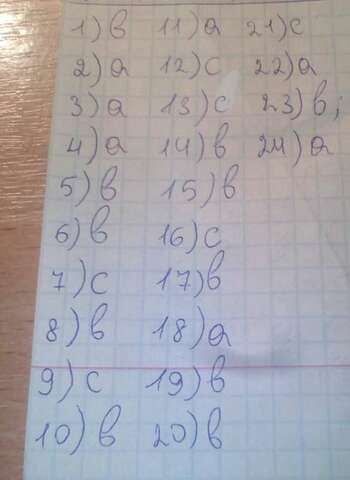 1) в 11) а 21) с
2) а 12) с 22) а
3) а 13) с 23) в;
4) а 14) в 24) а
5) в 15) в
6) в 16) с
7) с 17) в
8) в 18) а
9) с 19) в
10) в 20) в